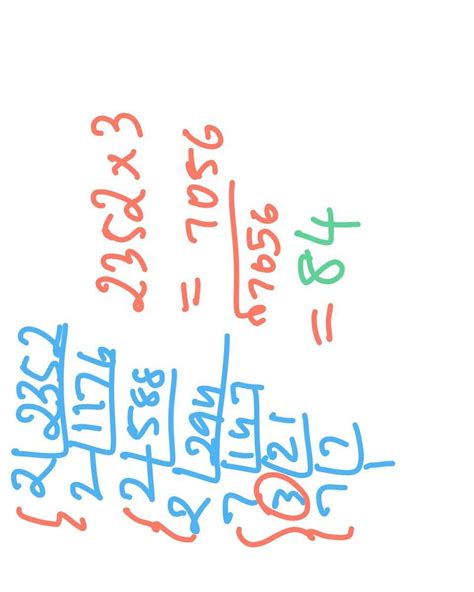 2352 x 3
= 7056
√7056
= 84
2 2352
2 1176
2 588
2 294
7 147
3 21
7 7
1